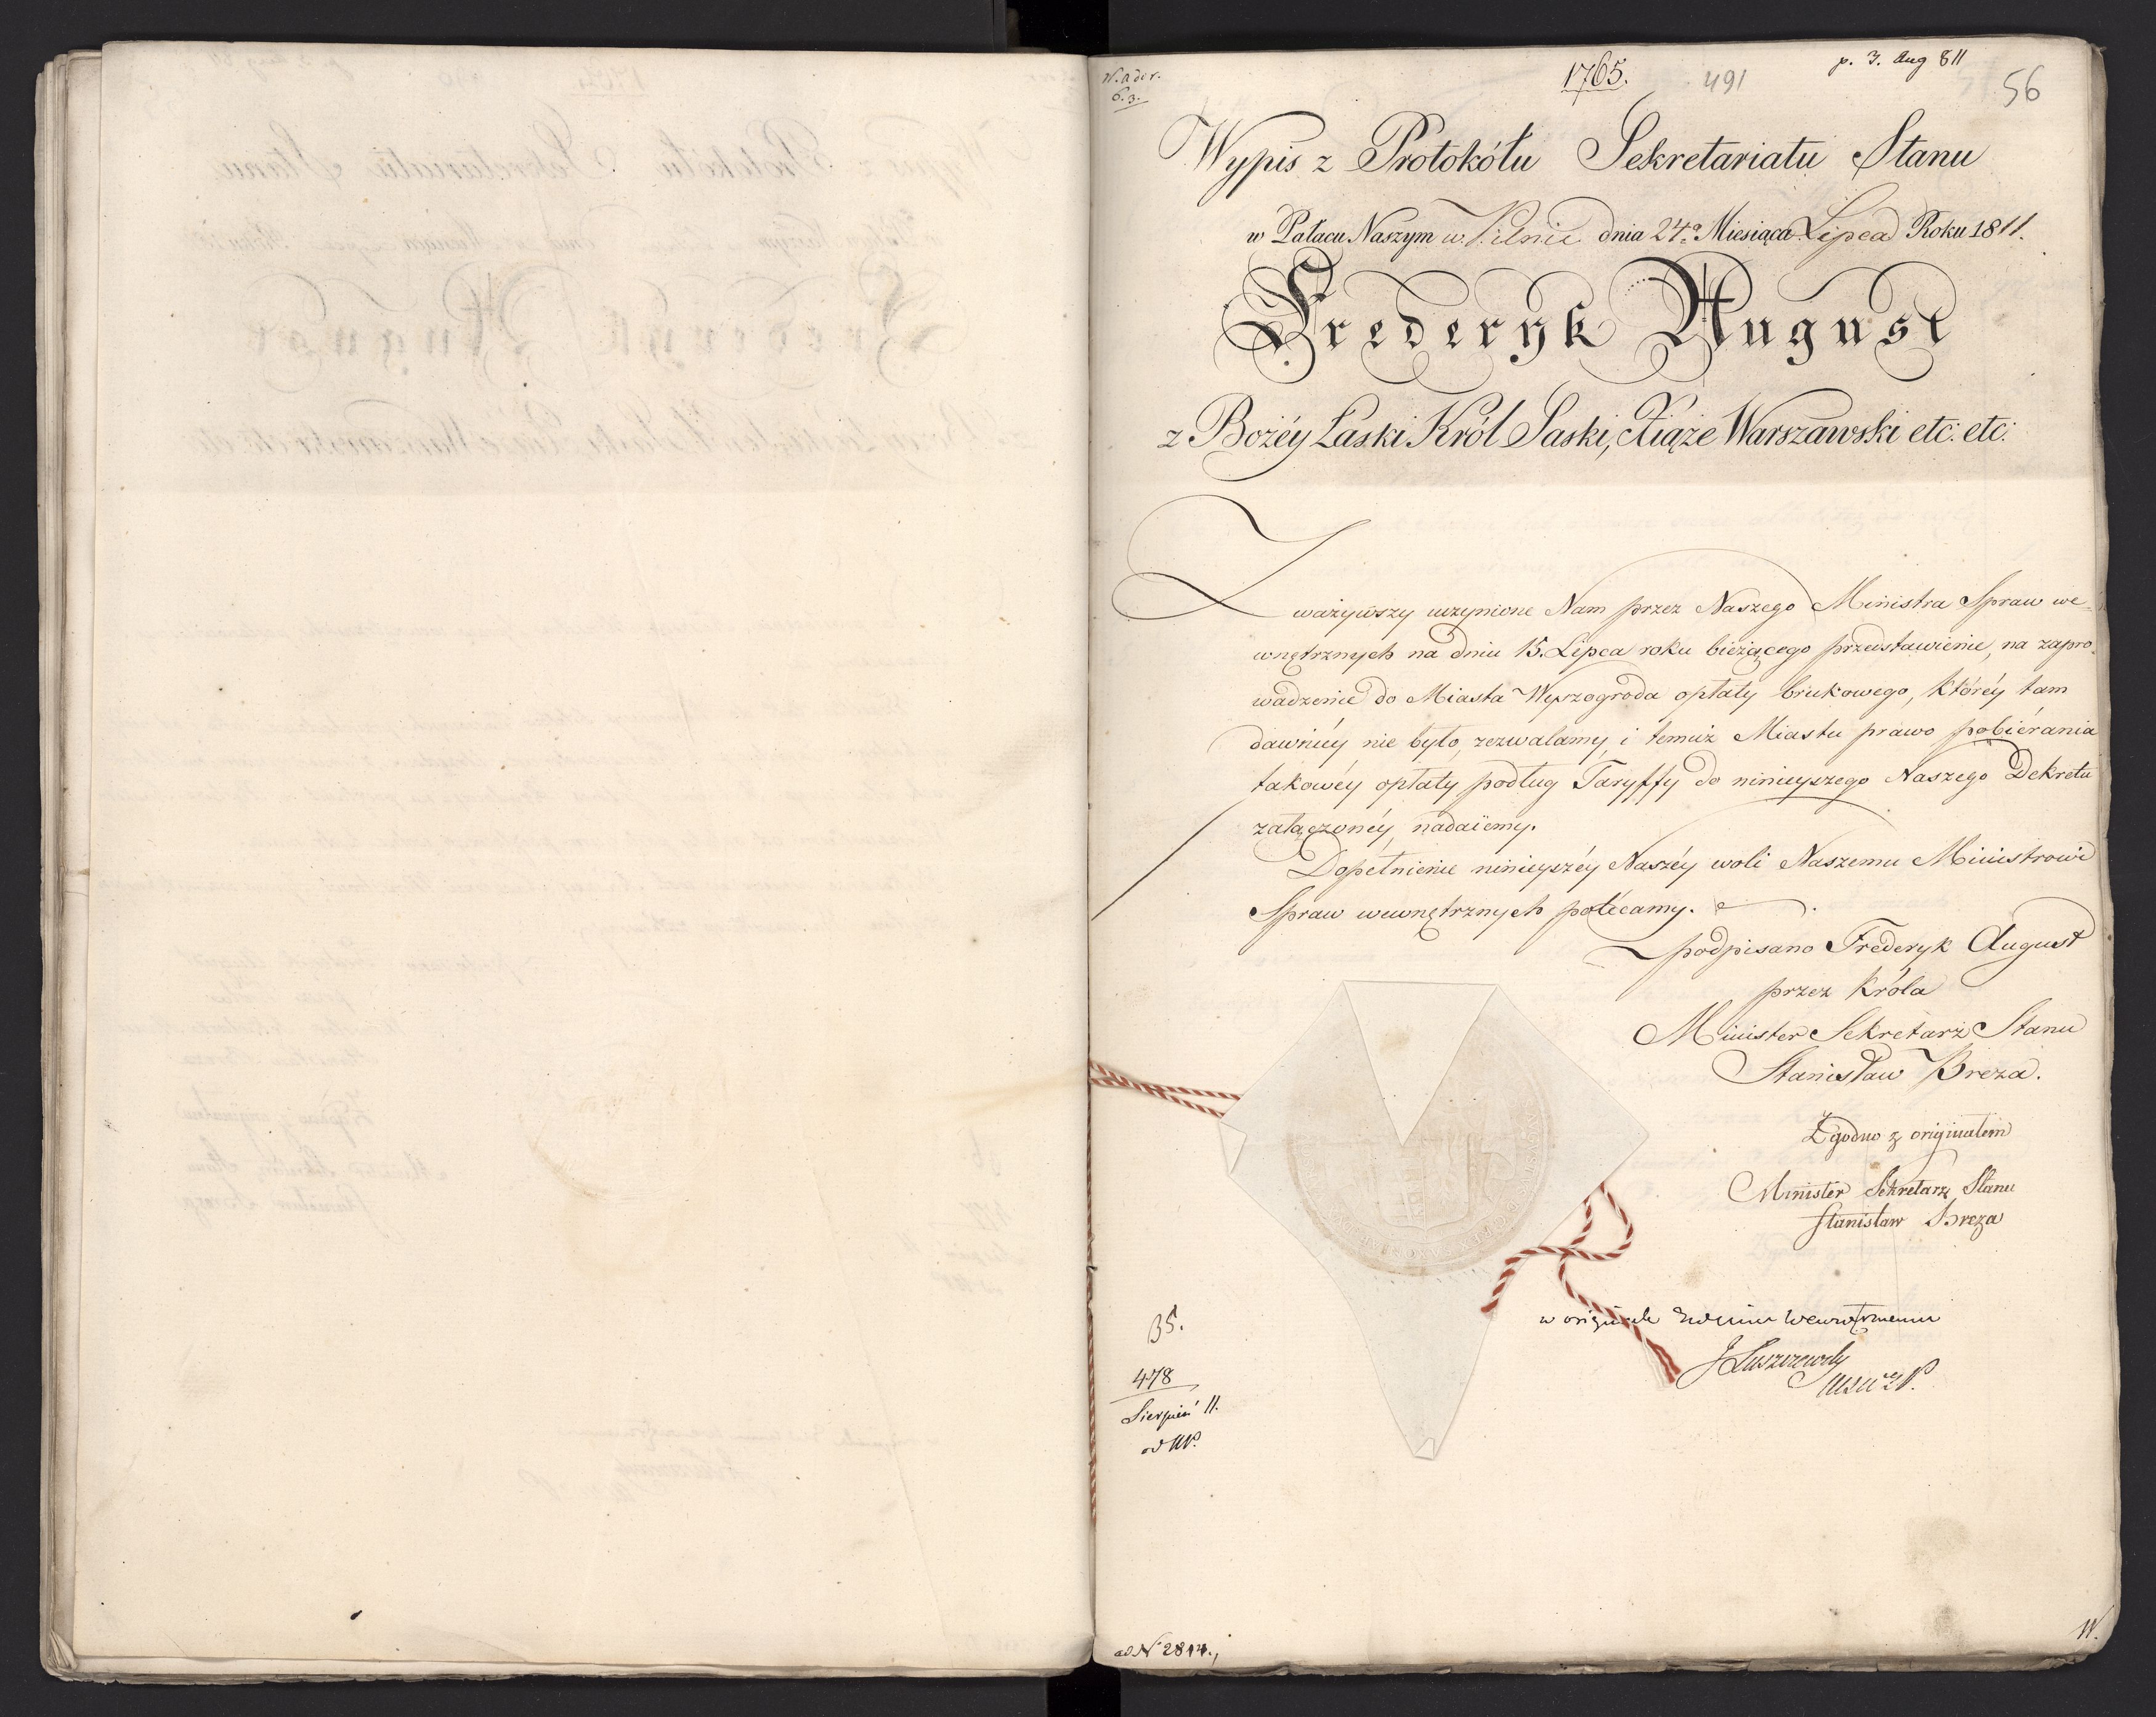 W. ador.
6.3.
1765.
491
p. 3. Aug 811
56
Wypis z Protokółu Sekretariatu Stanu
w Pałacu Naszym w Pilnic dnia 24.º Miesiąca Lipca Roku 1811.
Frederyk August
z Bożéy Łaski Król Saski, Xiąże Warszawski etc: etc:
Zważywszy uczynione Nam przez Naszego Ministra Spraw we-
wnętrznych na dniu 15. Lipca roku bieżącego przedstawienie, na zapro-
wadzenie do Miasta Wyszogroda opłaty brukowego, któréy tam
dawniéy nie było, zezwalamy, i temuż Miastu prawo pobiérania
takowéy opłaty podług Taryffy do ninieyszego Naszego Dekretu
załączonéy, nadaiemy.
Dopełnienie ninieyszéy Naszéy woli Naszemu Ministrowi
Spraw wewnętrznych polécamy.
podpisano Frederyk August
przez Króla
Minister Sekretarz Stanu
Stanisław Breza.
Zgodno z originałem
Minister Sekretarz Stanu
Stanisław Breza
w originale
J Łuszczewsky
35.
478
Sierpień 11.
od
ad N 2814.
W.